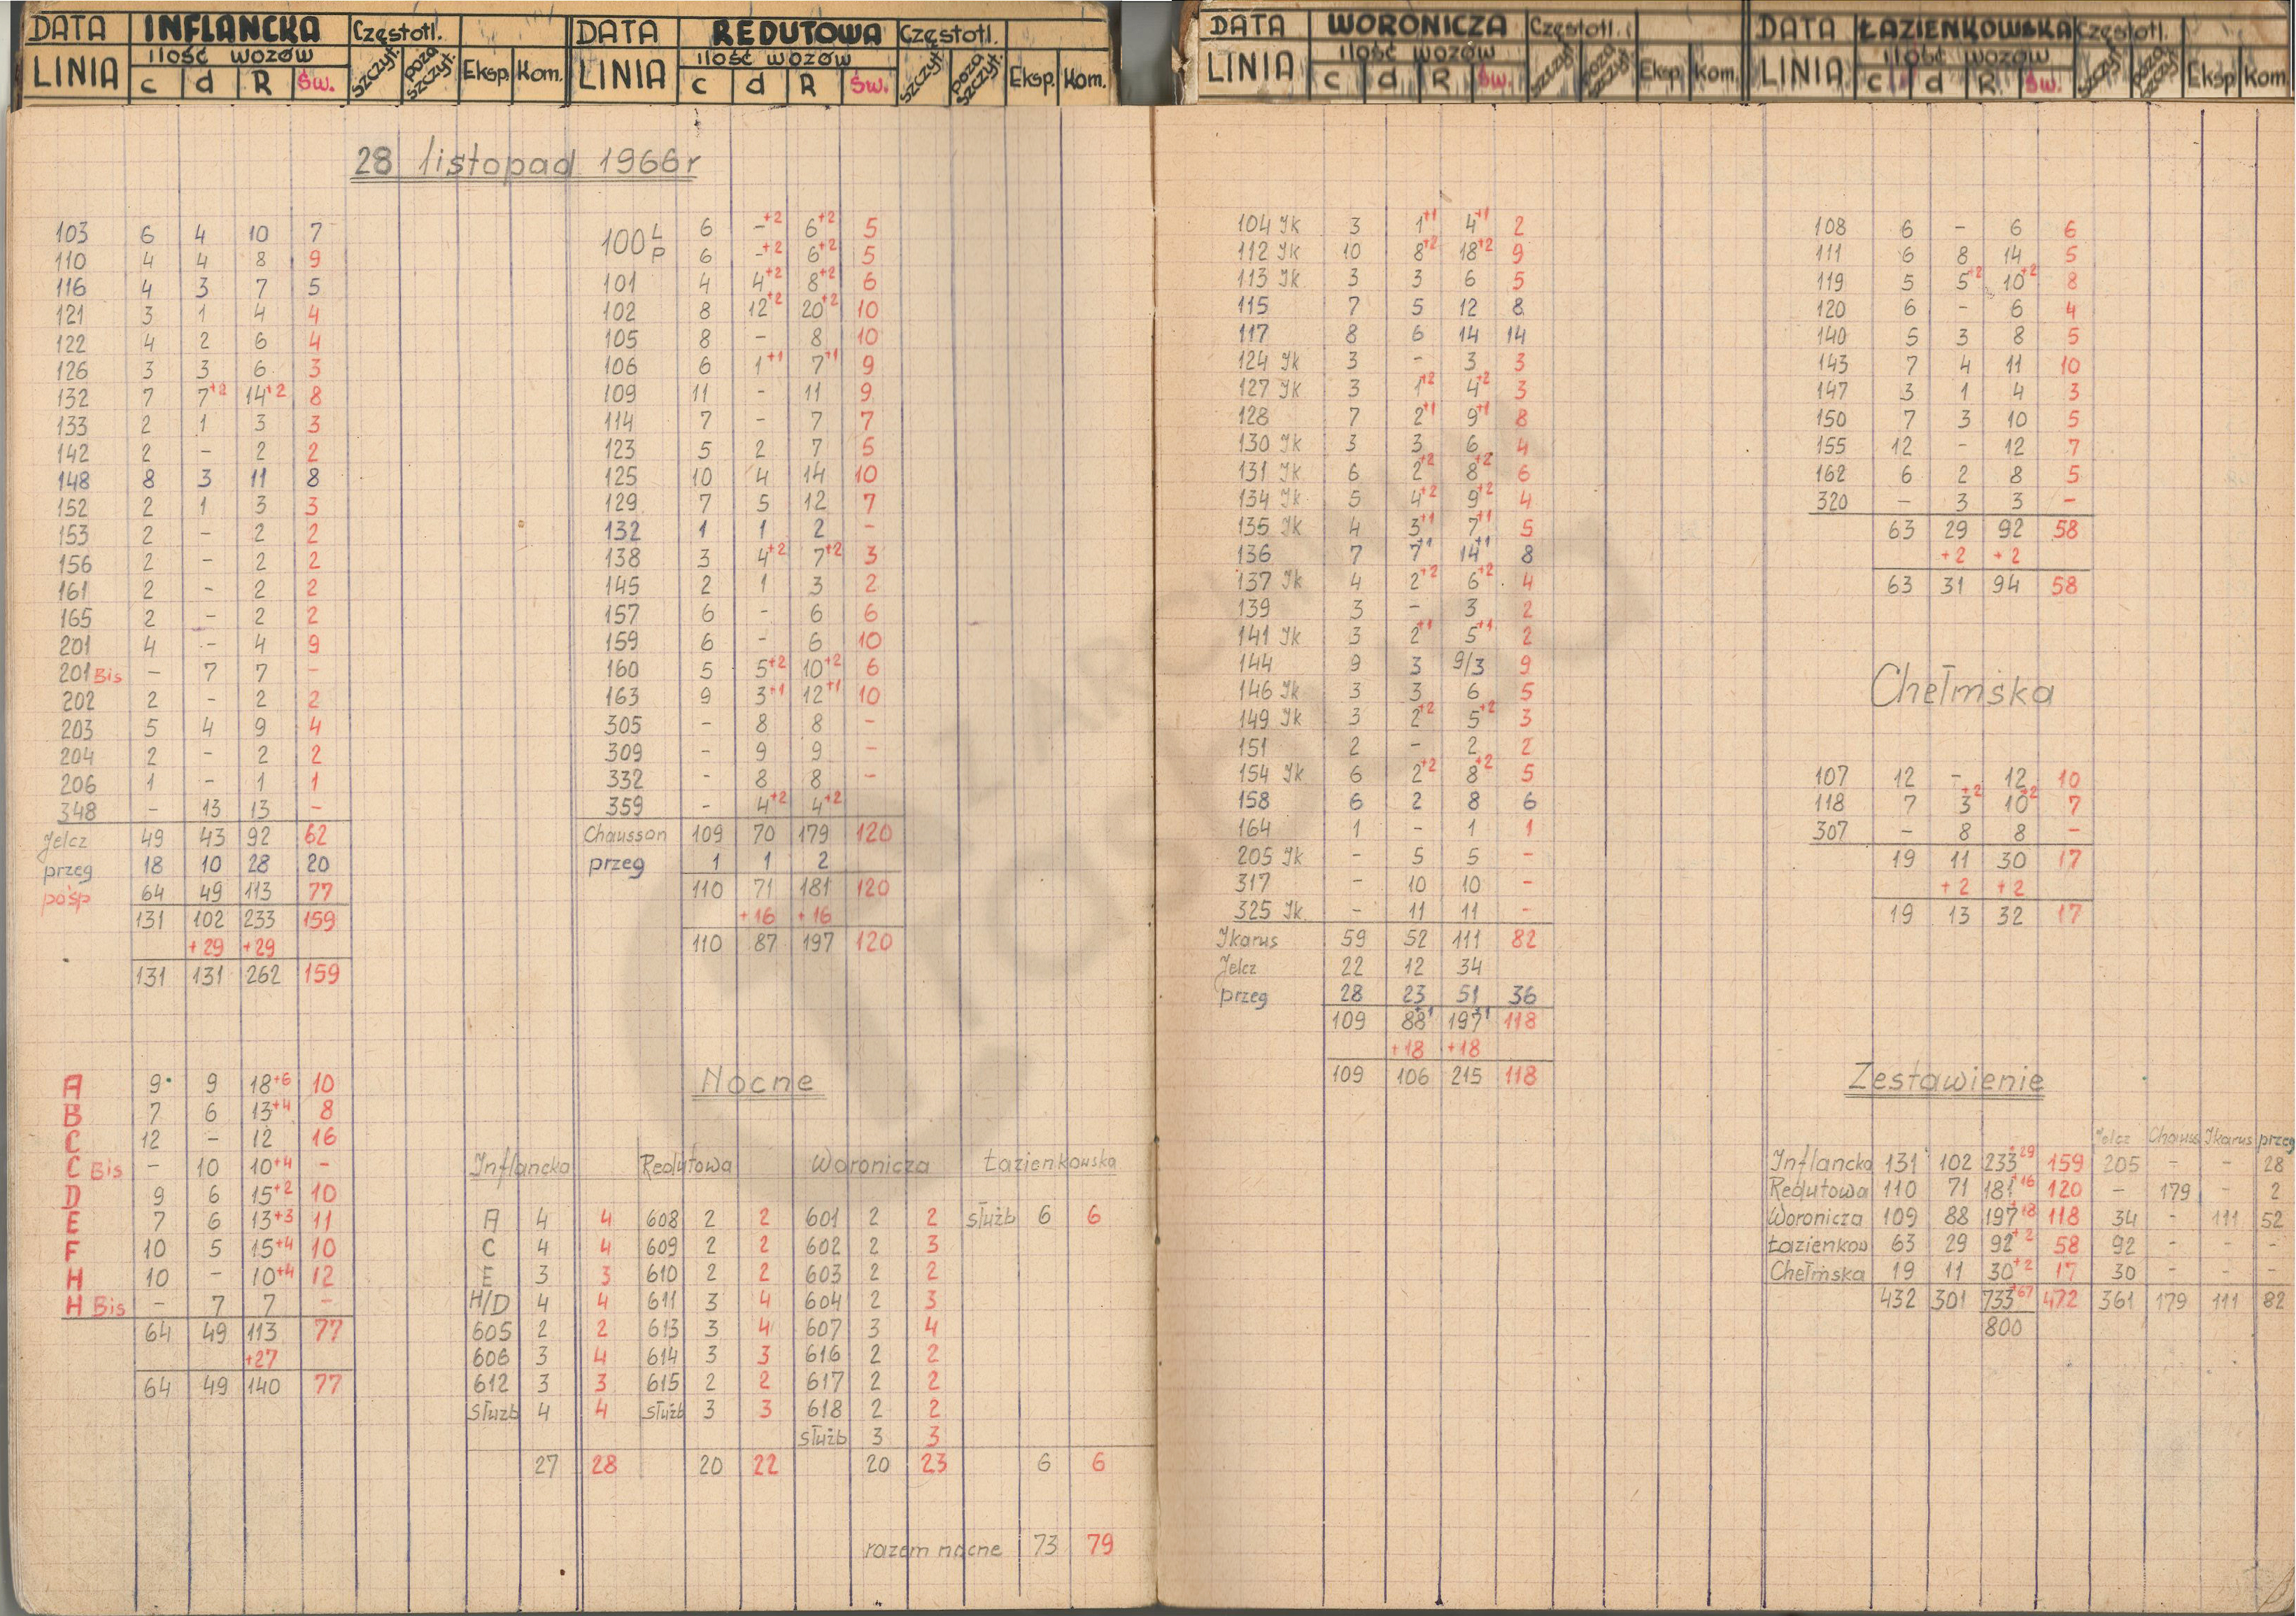 DATA INFLANCKA Częstotl.
LINIA ilość wozów szczyt. poza szczyt. Eksp. Kom.
c d R Św.
28 listopad 1966r
103 6 4 10 7
110 4 4 8 9
116 4 3 7 5
121 3 1 4 4
122 4 2 6 4
126 3 3 6 3
132 7 7+2 14+2 8
133 2 1 3 3
142 2 - 2 2
148 8 3 11 8
152 2 1 3 3
153 2 - 2 2
156 2 - 2 2
161 2 - 2 2
165 2 - 2 2
201 4 - 4 9
201 Bis - 7 7 -
202 2 - 2 2
203 5 4 9 4
204 2 - 2 2
206 1 - 1 1
348 - 13 13 -
Jelcz 49 43 92 62
przeg 18 10 28 20
pośp 64 49 113 77
131 102 233 159
+29 +29
131 131 262 159
A 9 9 18+6 10
B 7 6 13+4 8
C 12 - 12 16
C Bis - 10 10+4 -
D 9 6 15+2 10
E 7 6 13+3 11
F 10 5 15+4 10
H 10 - 10+4 12
H Bis - 7 7 -
64 49 113 77
+27
64 49 140 77
DATA REDUTOWA Częstotl.
LINIA ilość wozów szczyt. poza szczyt. Eksp. Kom.
c d R Św.
100 L 6 -+2 6+2 5
P 6 -+2 6+2 5
101 4 4+2 8+2 6
102 8 12+2 20+2 10
105 8 - 8 10
106 6 1+1 7+1 9
109 11 - 11 9
114 7 - 7 7
123 5 2 7 5
125 10 4 14 10
129 7 5 12 7
132 1 1 2 -
138 3 4+2 7+2 3
145 2 1 3 2
157 6 - 6 6
159 6 - 6 10
160 5 5+2 10+2 6
163 9 3+1 12+1 10
305 - 8 8 -
309 - 9 9 -
332 - 8 8 -
359 - 4+2 4+2
Chausson 109 70 179 120
przeg 1 1 2
110 71 181 120
+16 +16
110 87 197 120
Nocne
Inflancka Redutowa Woronicza Łazienkowska
A 4 4 608 2 2 601 2 2 służb 6 6
C 4 4 609 2 2 602 2 3
E 3 3 610 2 2 603 2 2
H/D 4 4 611 3 4 604 2 3
605 2 2 613 3 4 607 3 4
606 3 4 614 3 3 616 2 2
612 3 3 615 2 2 617 2 2
służb 4 4 służb 3 3 618 2 2
służb 3 3
27 28 20 22 20 23 6 6
razem nocne 73 79
DATA WORONICZA Częstotl.
LINIA ilość wozów szczyt. poza szczyt. Eksp. Kom.
c d R Św.
104 Jk 3 1+1 4+1 2
112 Jk 10 8+2 18+2 9
113 Jk 3 3 6 5
115 7 5 12 8
117 8 6 14 14
124 Jk 3 - 3 3
127 Jk 3 1+2 4+2 3
128 7 2+1 9+1 8
130 Jk 3 3 6 4
131 Jk 6 2+2 8+2 6
134 Jk 5 4+2 9+2 4
135 Jk 4 3+1 7+1 5
136 7 7+1 14+1 8
137 Jk 4 2+2 6+2 4
139 3 - 3 2
141 Jk 3 2+1 5+1 2
144 9 3 9/3 9
146 Jk 3 3 6 5
149 Jk 3 2+2 5+2 3
151 2 - 2 2
154 Jk 6 2+2 8+2 5
158 6 2 8 6
164 1 - 1 1
205 Jk - 5 5 -
317 - 10 10 -
325 Jk - 11 11 -
Jkarus 59 52 111 82
Jelcz 22 12 34
przeg 28 23 51 36
109 88+1 197+1 118
+18 +18
109 106 215 118
DATA ŁAZIENKOWSKA Częstotl.
LINIA ilość wozów szczyt. poza szczyt. Eksp. Kom.
c d R Św.
108 6 - 6 6
111 6 8 14 5
119 5 5+2 10+2 8
120 6 - 6 4
140 5 3 8 5
143 7 4 11 10
147 3 1 4 3
150 7 3 10 5
155 12 - 12 7
162 6 2 8 5
320 - 3 3 -
63 29 92 58
+2 +2
63 31 94 58
Chełmska
107 12 - 12 10
118 7 3+2 10+2 7
307 - 8 8 -
19 11 30 17
+2 +2
19 13 32 17
Zestawienie
Jelcz Chauss Ikarus przeg
Inflancka 131 102 233+29 159 205 - - 28
Redutowa 110 71 181+16 120 - 179 - 2
Woronicza 109 88 197+18 118 34 - 111 52
Łazienkow 63 29 92+2 58 92 - - -
Chełmska 19 11 30+2 17 30 - - -
432 301 733+67 472 361 179 111 82
800